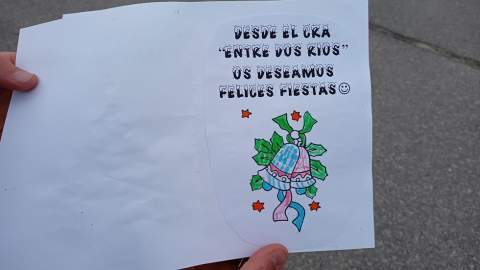 DESDE EL CRA
"ENTRE DOS RIOS"
OS DESEAMOS
FELICES FIESTAS☺